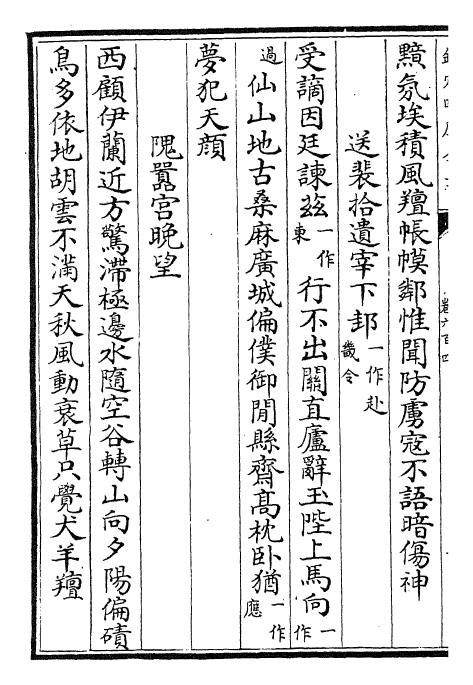 黯氛埃積風羶帳幙鄰惟聞防虜宼不語暗傷神
送裴拾遺宰下邽一作赴畿令
受謫因廷諫兹一作東行不出關直廬辭玉陛上馬向一作
過仙山地古桑麻廣城偏僕御閒縣齋髙枕卧猶一作應
夢犯天顔
隗囂宮晚望
西顧伊蘭近方驚滯極邊水隨空谷轉山向夕陽偏磧
鳥多依地胡雲不滿天秋風動衰草只覺犬羊羶
卷六百四